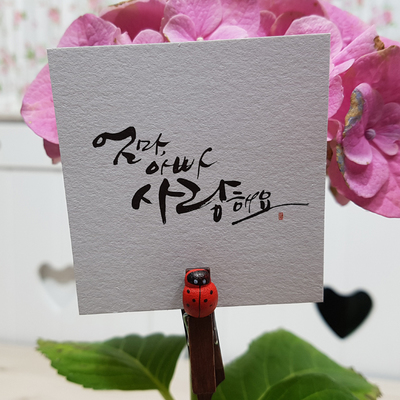 엄마,
아빠
사랑해요